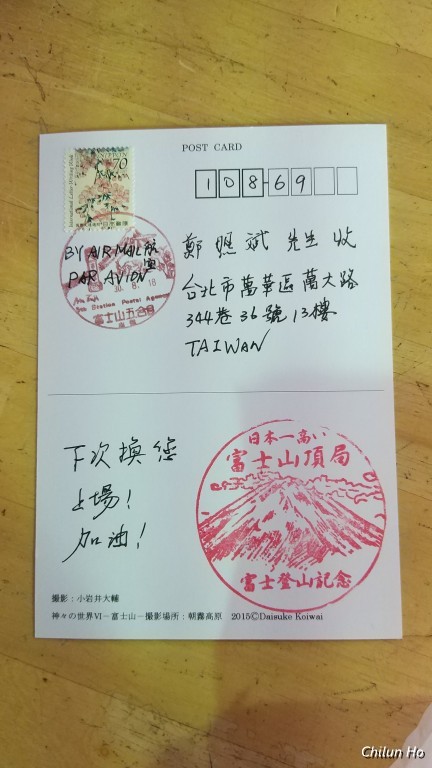 POST CARD
70
NIPPON
日本郵便
108-69
BY AIR MAIL 航
PAR AVION 空
30. 8. 18
5th Station Postal Agency
富士山五合目
鄭 照 斌 先生 收
台北市萬華區萬大路
344巷36號13樓
TAIWAN
下次換您
上場!
加油!
日本一高い
富士山頂局
富士登山記念
撮影：小岩井大輔
神々の世界VI－富士山－撮影場所：朝霧高原 2015©Daisuke Koiwai
Chilun Ho